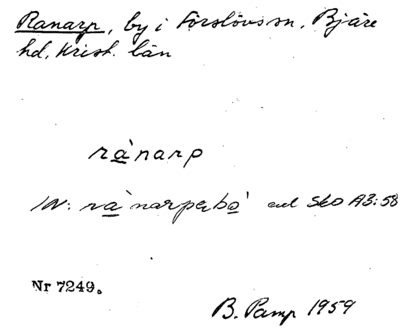 Ranarp, by i Förslövs sn, Bjäre
hd, Krist. län
rànarp
IN: rànarpabo enl SkO A3:58
Nr 7249.
B. Pamp 1959